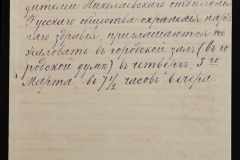 дителей Николаевского отделения
Русского общества охранения народ
наго здравия, приглашаются по
жаловать въ городской залъ (въ го
родской думѣ) въ четвергъ, 5го
Марта въ 7 1/2 часовъ вечера